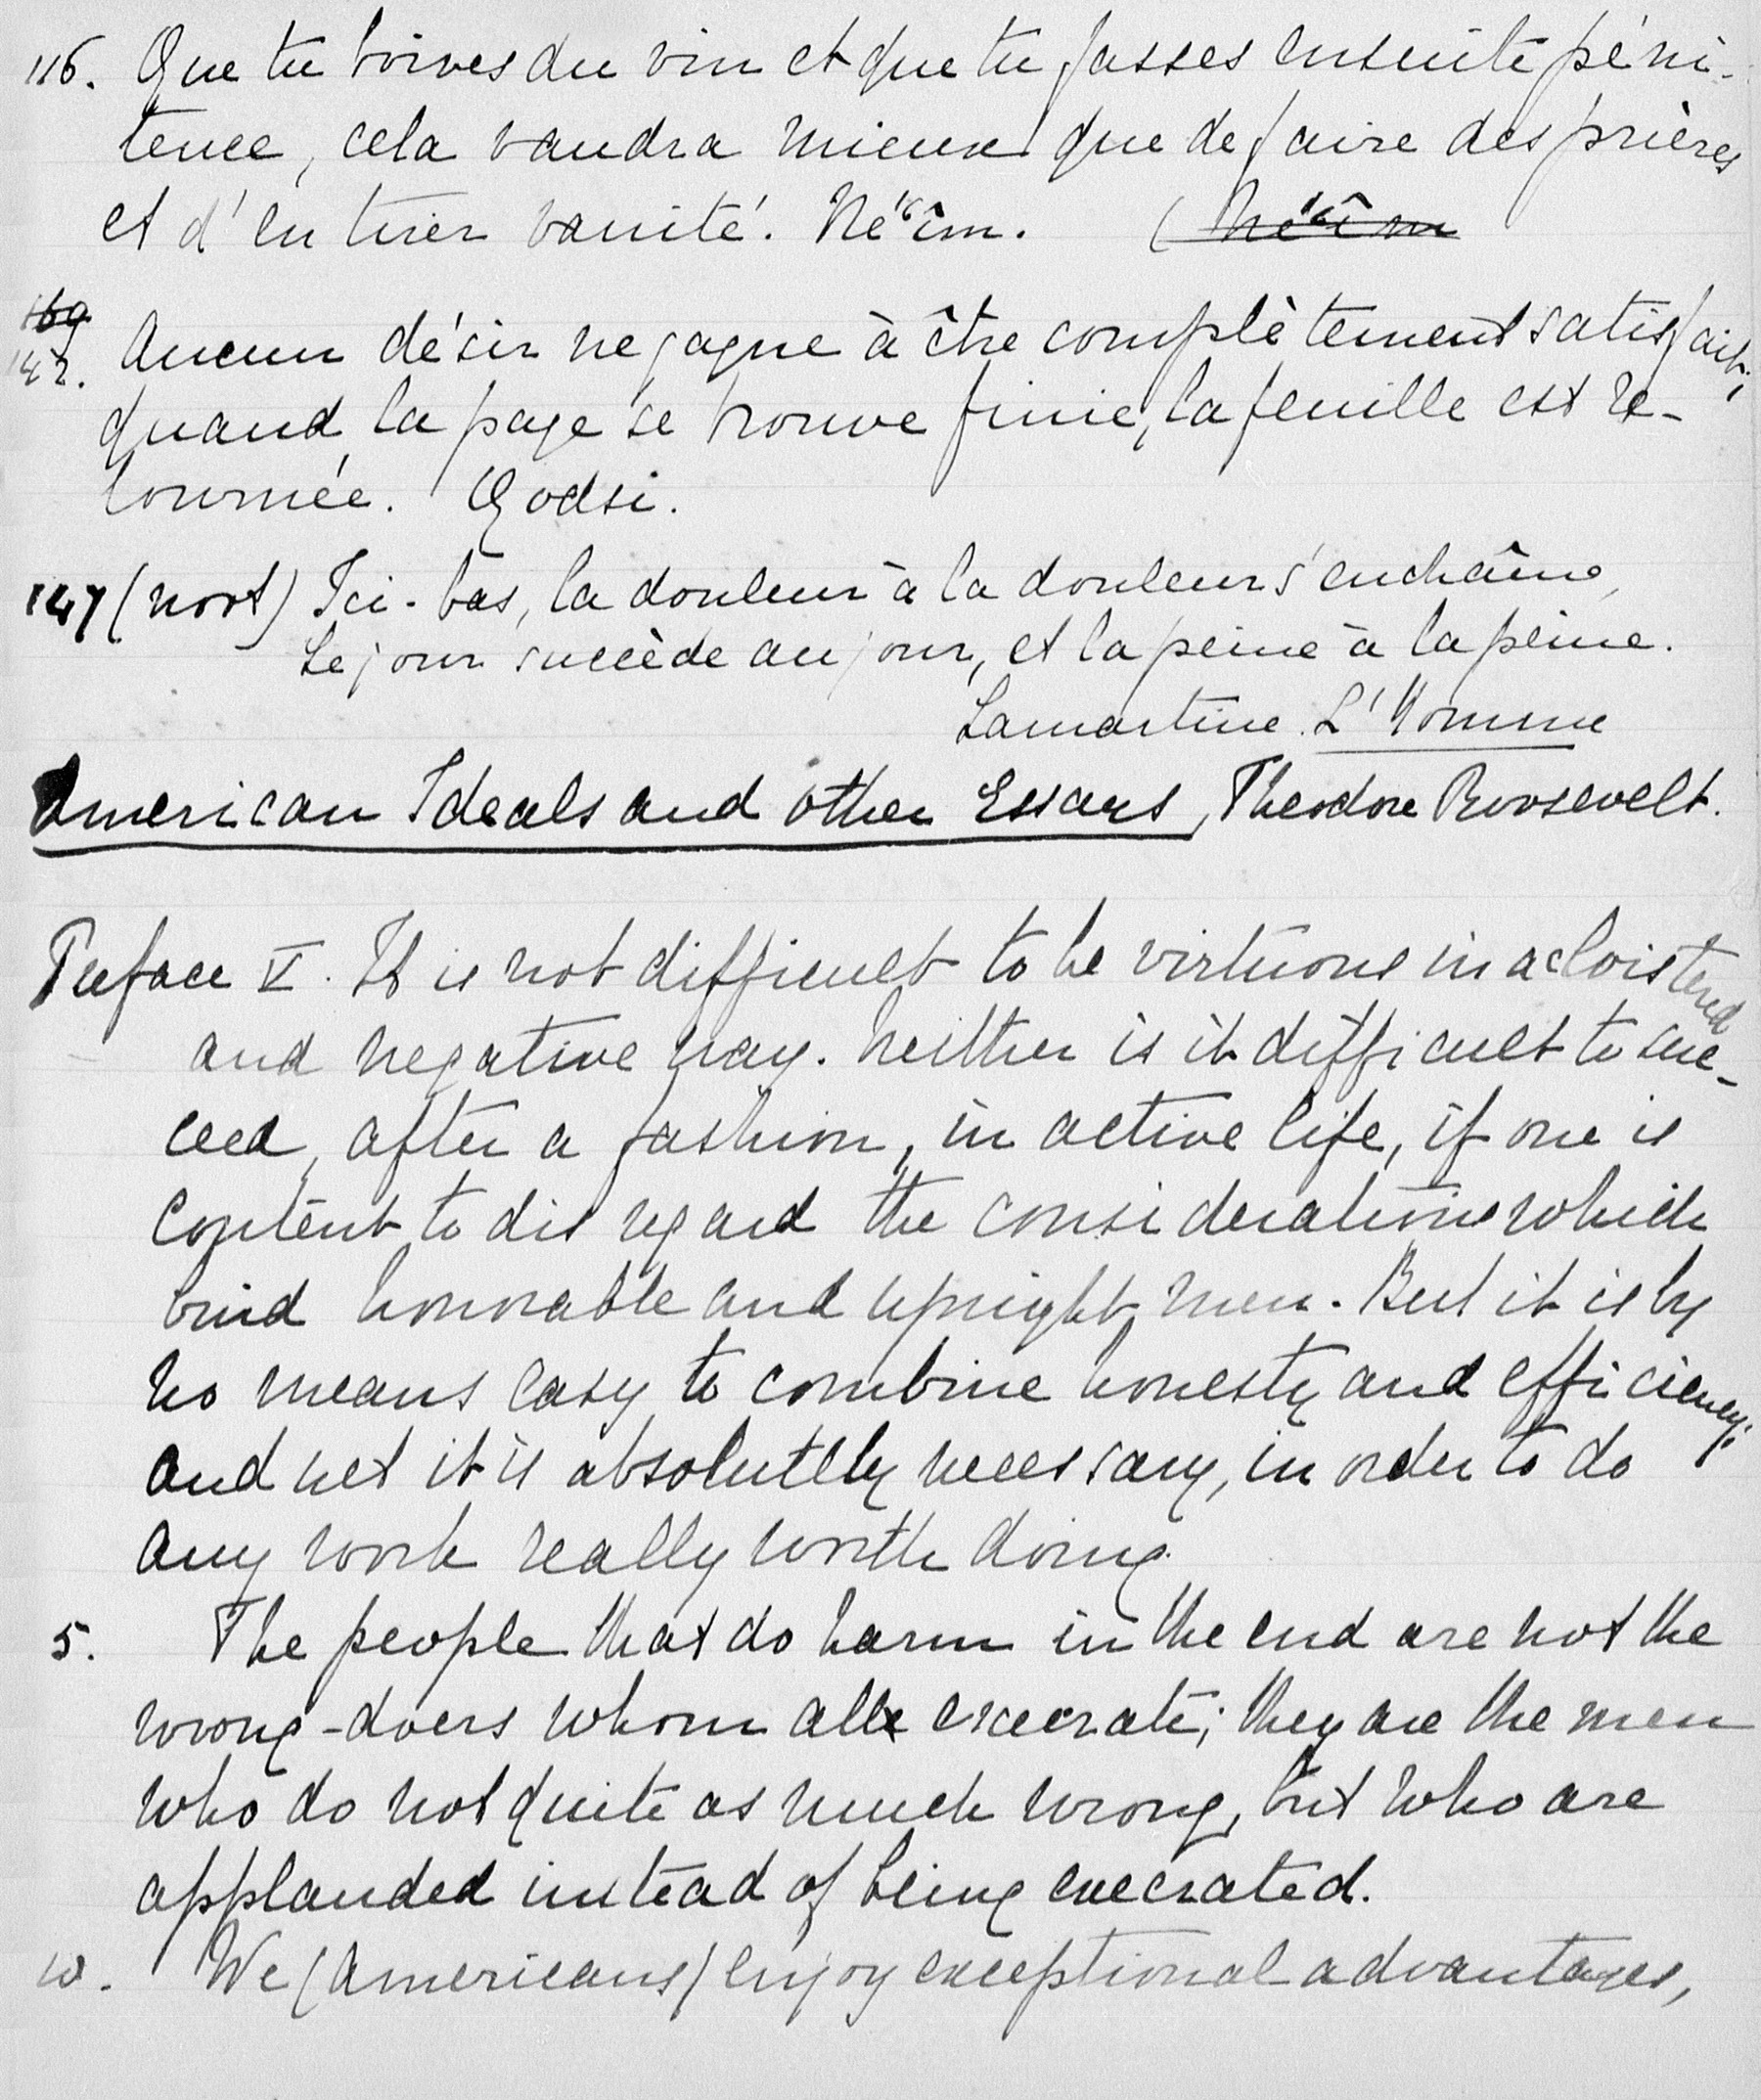 116. Que tu boives du vin et que tu fasses ensuite péni-
tence, cela vaudra mieux que de faire des prières
et d'en tirer vanité. Né'îm. (Né'îm
169
142. Aucun désir ne gagne à être complètement satisfait;
quand la page se trouve finie, la feuille est re-
tournée. Qodsi.
147 (nort) Ici-bas, la douleur à la douleur s'enchaîne,
Le jour succède au jour, et la peine à la peine.
Lamartine. L'Homme
American Ideals and other Essays, Theodore Roosevelt.
Preface V. It is not difficult to be virtuous in a cloistered
and negative way. Neither is it difficult to suc-
ceed, after a fashion, in active life, if one is
content to disregard the considerations which
bind honorable and upright men. But it is by
no means easy to combine honesty and efficiency;
and yet it is absolutely necessary, in order to do
any work really worth doing.
5. The people that do harm in the end are not the
wrong-doers whom all execrate; they are the men
who do not quite as much wrong, but who are
applauded instead of being execrated.
10. We (Americans) enjoy exceptional advantages,